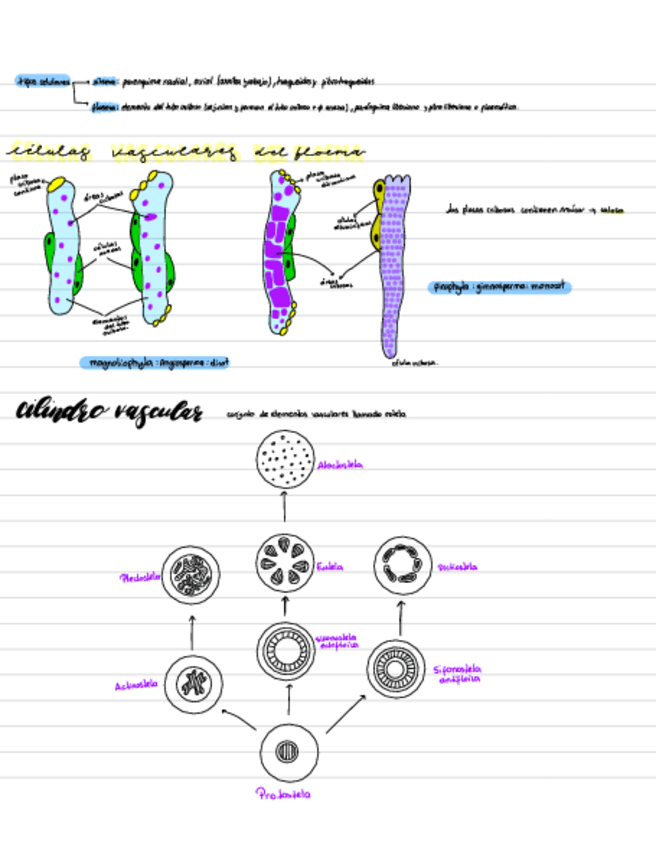 tipos celulares
xilema: parenquima radial, axial (arriba y abajo), traqueidas y fibrotraqueidas
floema: elementos del tubo criboso (se juntan y forman el tubo criboso), parenquima liberiano y
células vasculares del floema
placa cribosa continua
áreas cribosas
células anexas
elementos del tubo criboso
placa cribosa discontinua
células albuminosas
áreas cribosas
las placas cribosas contienen azúcar → calosa
pinophyta: gimnosperma: monocot
magnoliophyta: Angiosperma: dicot
célula cribosa.
cilindro vascular
conjunto de elementos vasculares llamado estela
Atactostela
Plectostela
Eustela
Dictiostela
Actinostela
sifonostela ectofloica
Sifonostela anfifloica
Protostela